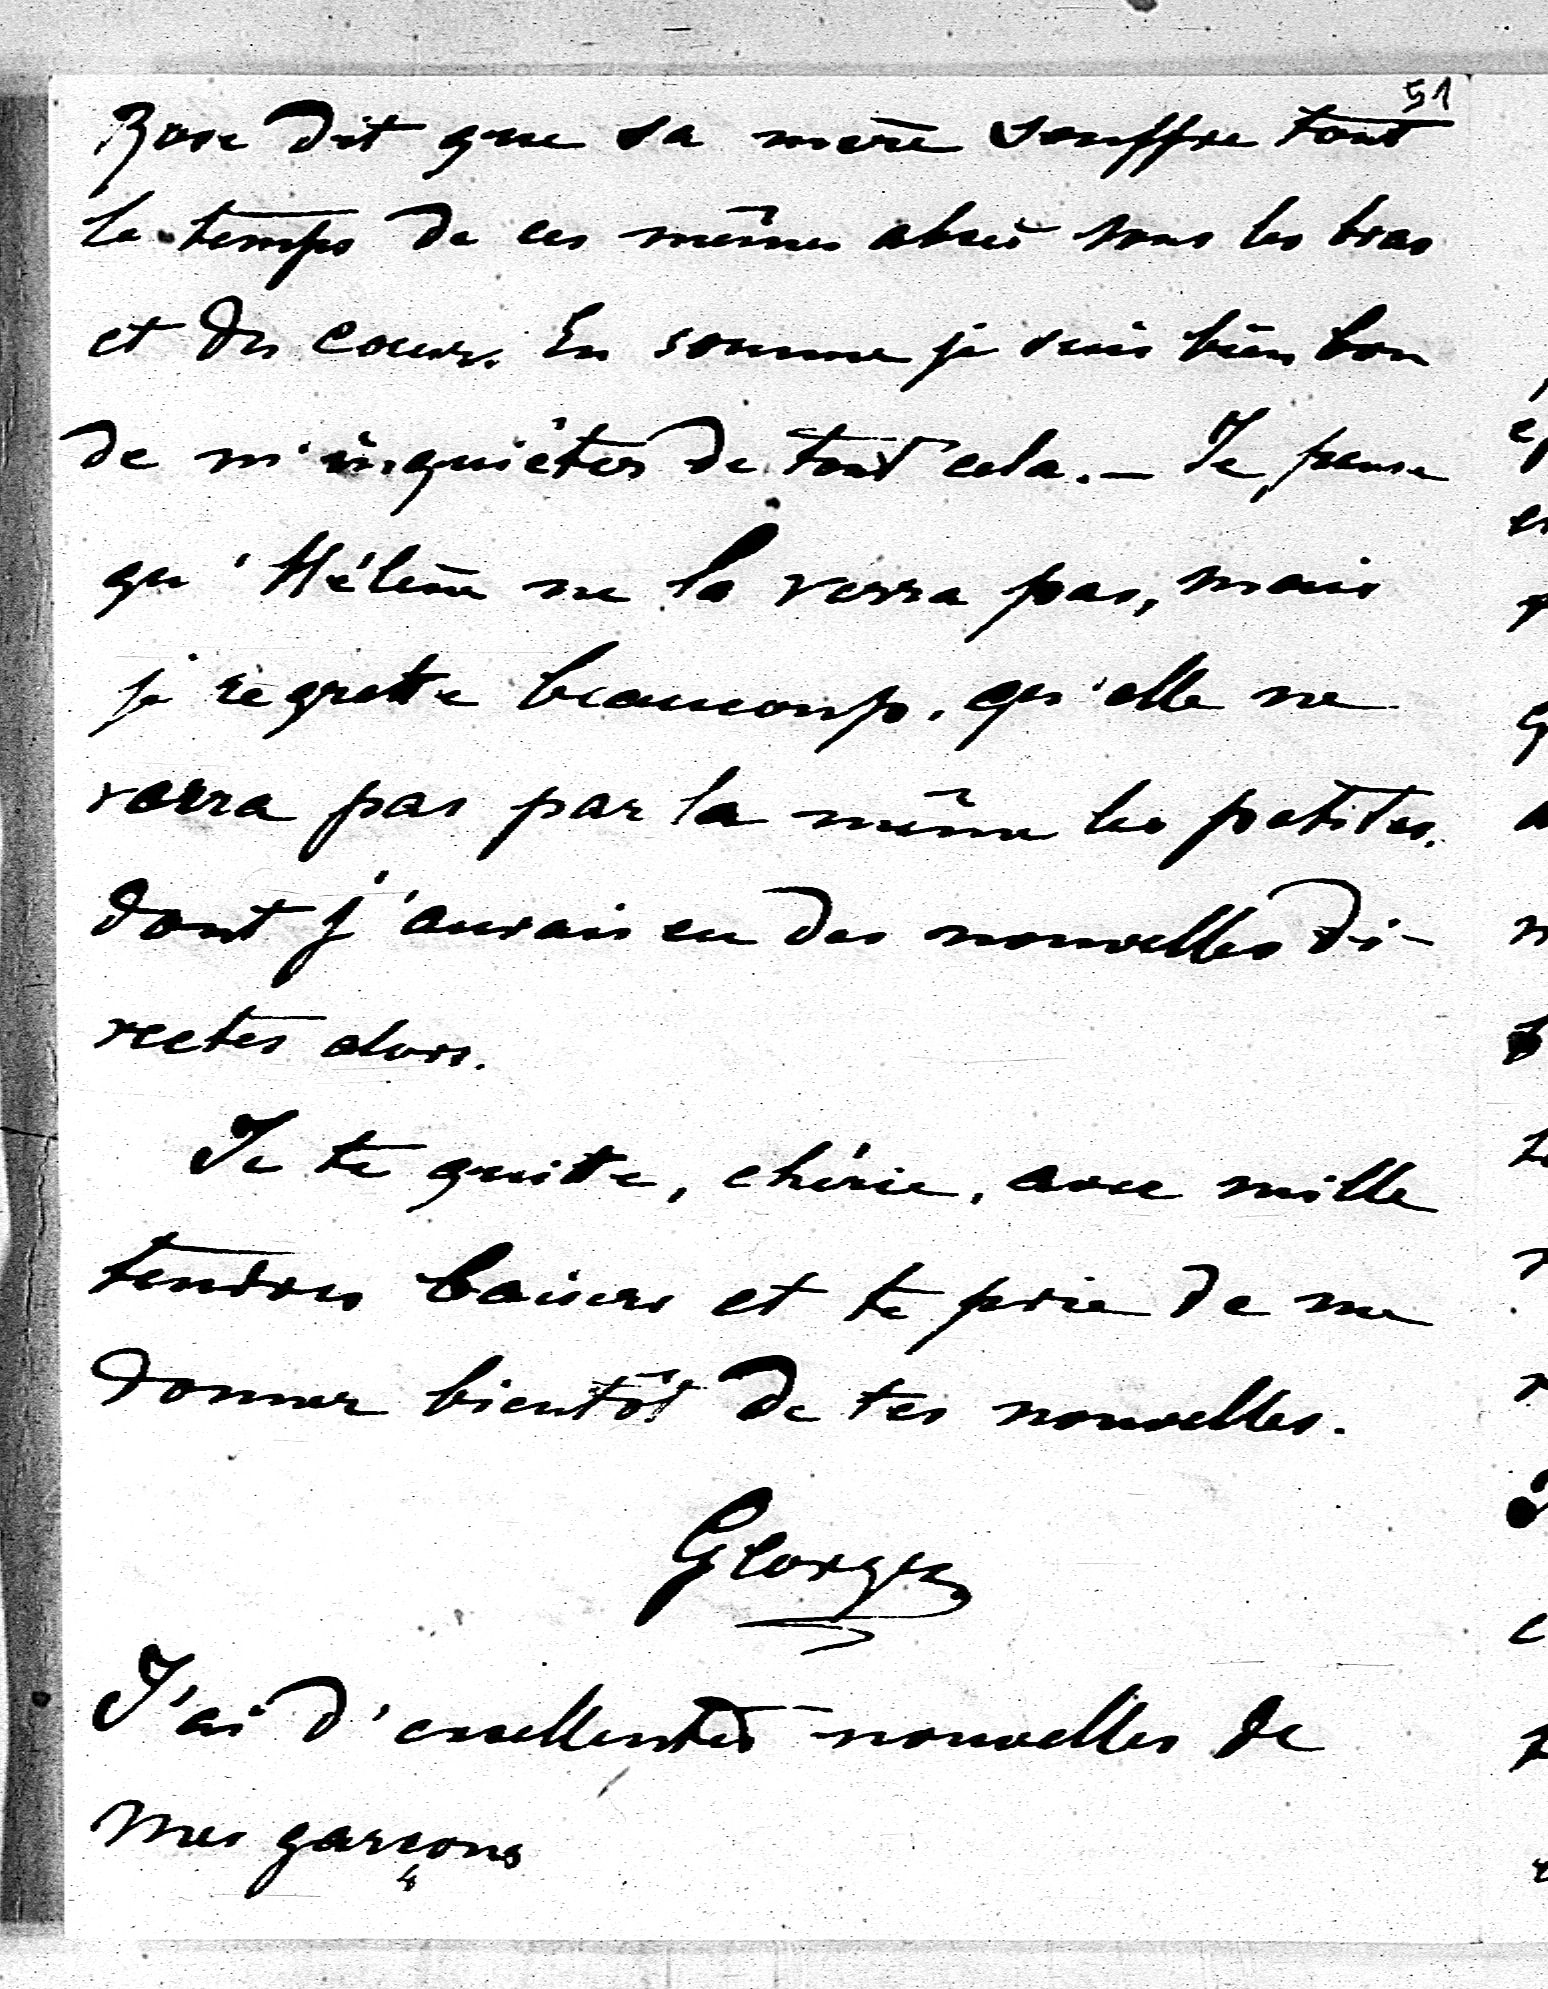 51
Rose dit que sa mère souffre tout
le temps de ces mêmes abcès sous les bras
et du coeur. En somme je suis bien bon
de m'inquiéter de tout cela. — Je pense
qu'Hélène ne la verra pas, mais
je regrette beaucoup, qu'elle ne
verra pas par la même les petites,
dont j'aurais eu des nouvelles di-
rectes alors.
Je te quitte, chérie, avec mille
tendres baisers et te prie de me
donner bientôt de tes nouvelles.
Georges
J'ai d'excellentes nouvelles de
mes garçons